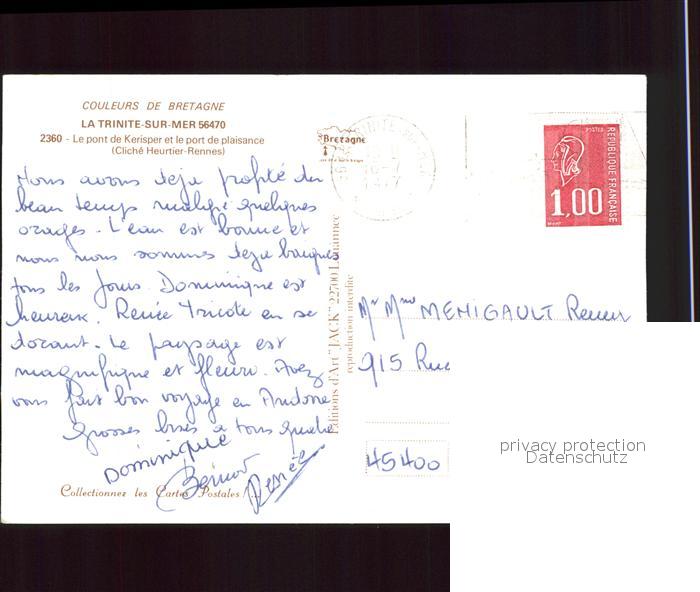 COULEURS DE BRETAGNE
LA TRINITE-SUR-MER 56470
2360 - Le pont de Kerisper et le port de plaisance
(Cliché Heurtier-Rennes)
Nous avons déjà profité du
beau temps malgré quelques
orages. L'eau est bonne et
nous nous sommes déjà baignés
tous les jours. Dominique est
heureux. Renée tricote en se
dorant. Le paysage est
magnifique et fleuri. Avez
vous fait bon voyage en Andorre
Grosses bises à tous quatre
Dominique
Renée
Collectionnez les Cartes Postales !
Editions d'Art "JACK" 22700 Louannec
reproduction interdite
Bretagne
POSTES
REPUBLIQUE FRANÇAISE
1,00
Mr Mme MENIGAULT
915 Rue
45400
privacy protection
Datenschutz